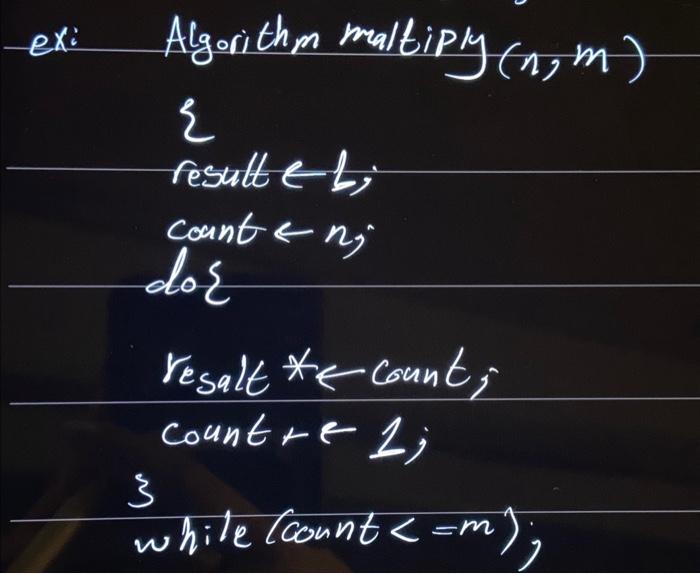 ex: Algorithm maltiply (n, m)
{
result ← 1;
count ← n;
do{
resalt *← count;
count +← 1;
}
while (count <= m);